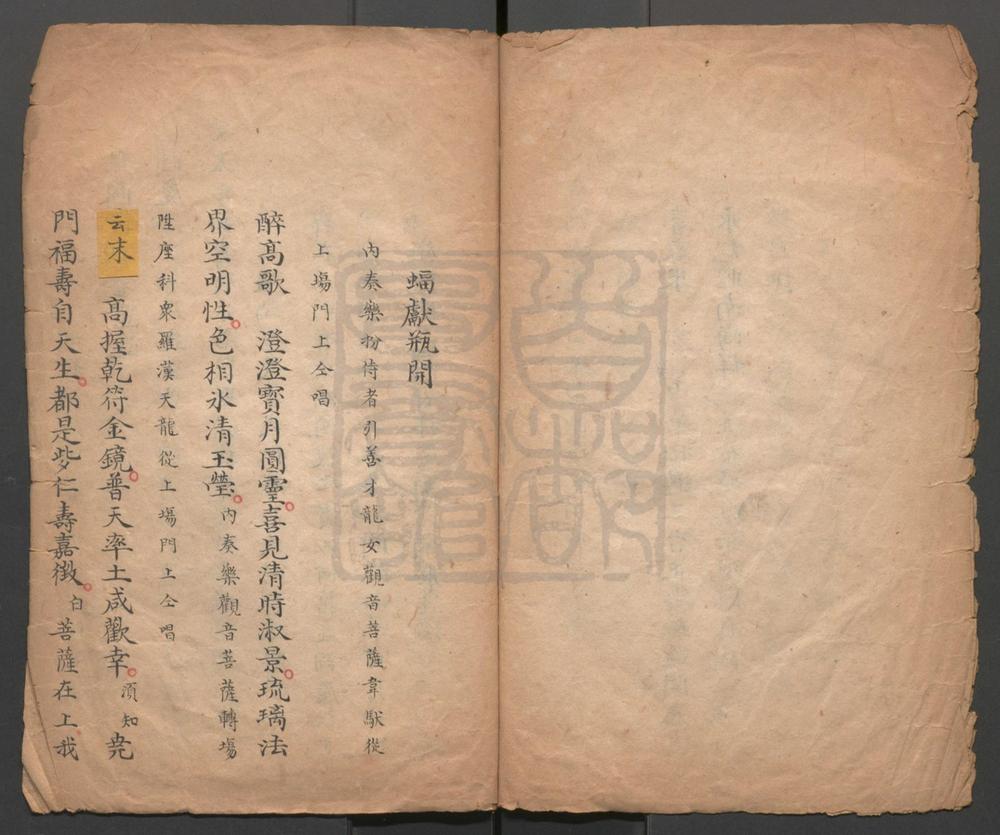 蝠獻瓶開
內奏樂扮侍者引善才龍女觀音菩薩韋馱從
上塲門上仝唱
醉高歌 澄澄寶月圓靈喜見清時淑景琉璃法
界空明性色相冰清玉瑩內奏樂觀音菩薩轉塲
陞座科衆羅漢天龍從上塲門上仝唱
云末 高握乾符金鏡普天率土咸歡幸須知堯
門福壽自天生都是些仁壽嘉徵白菩薩在上我